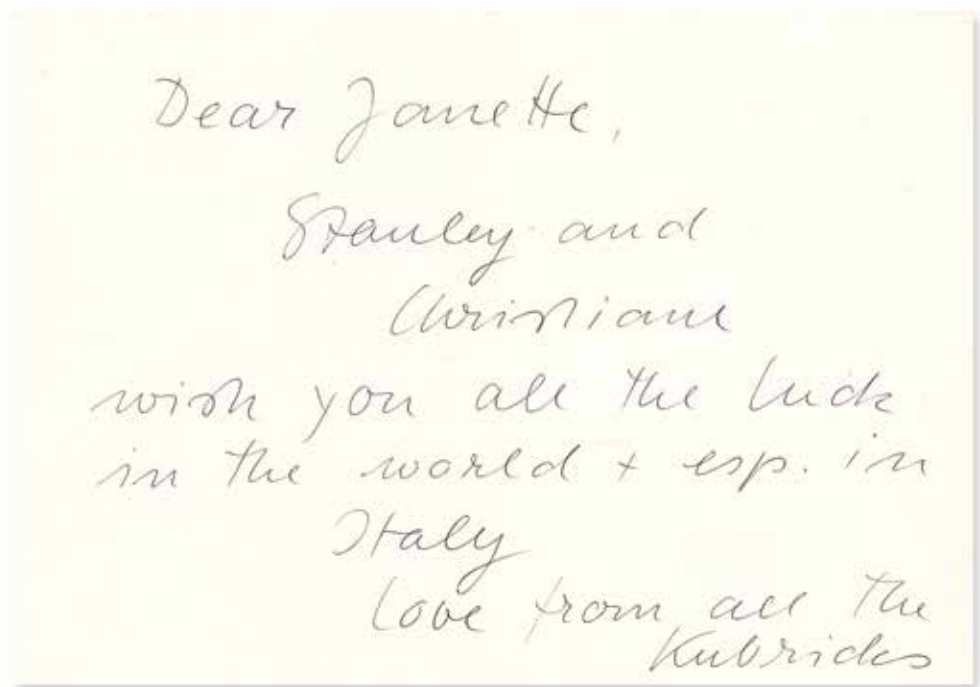 Dear Janette,
Stanley and
Christiane
wish you all the luck
in the world + esp. in
Italy
Love from all the
Kubricks